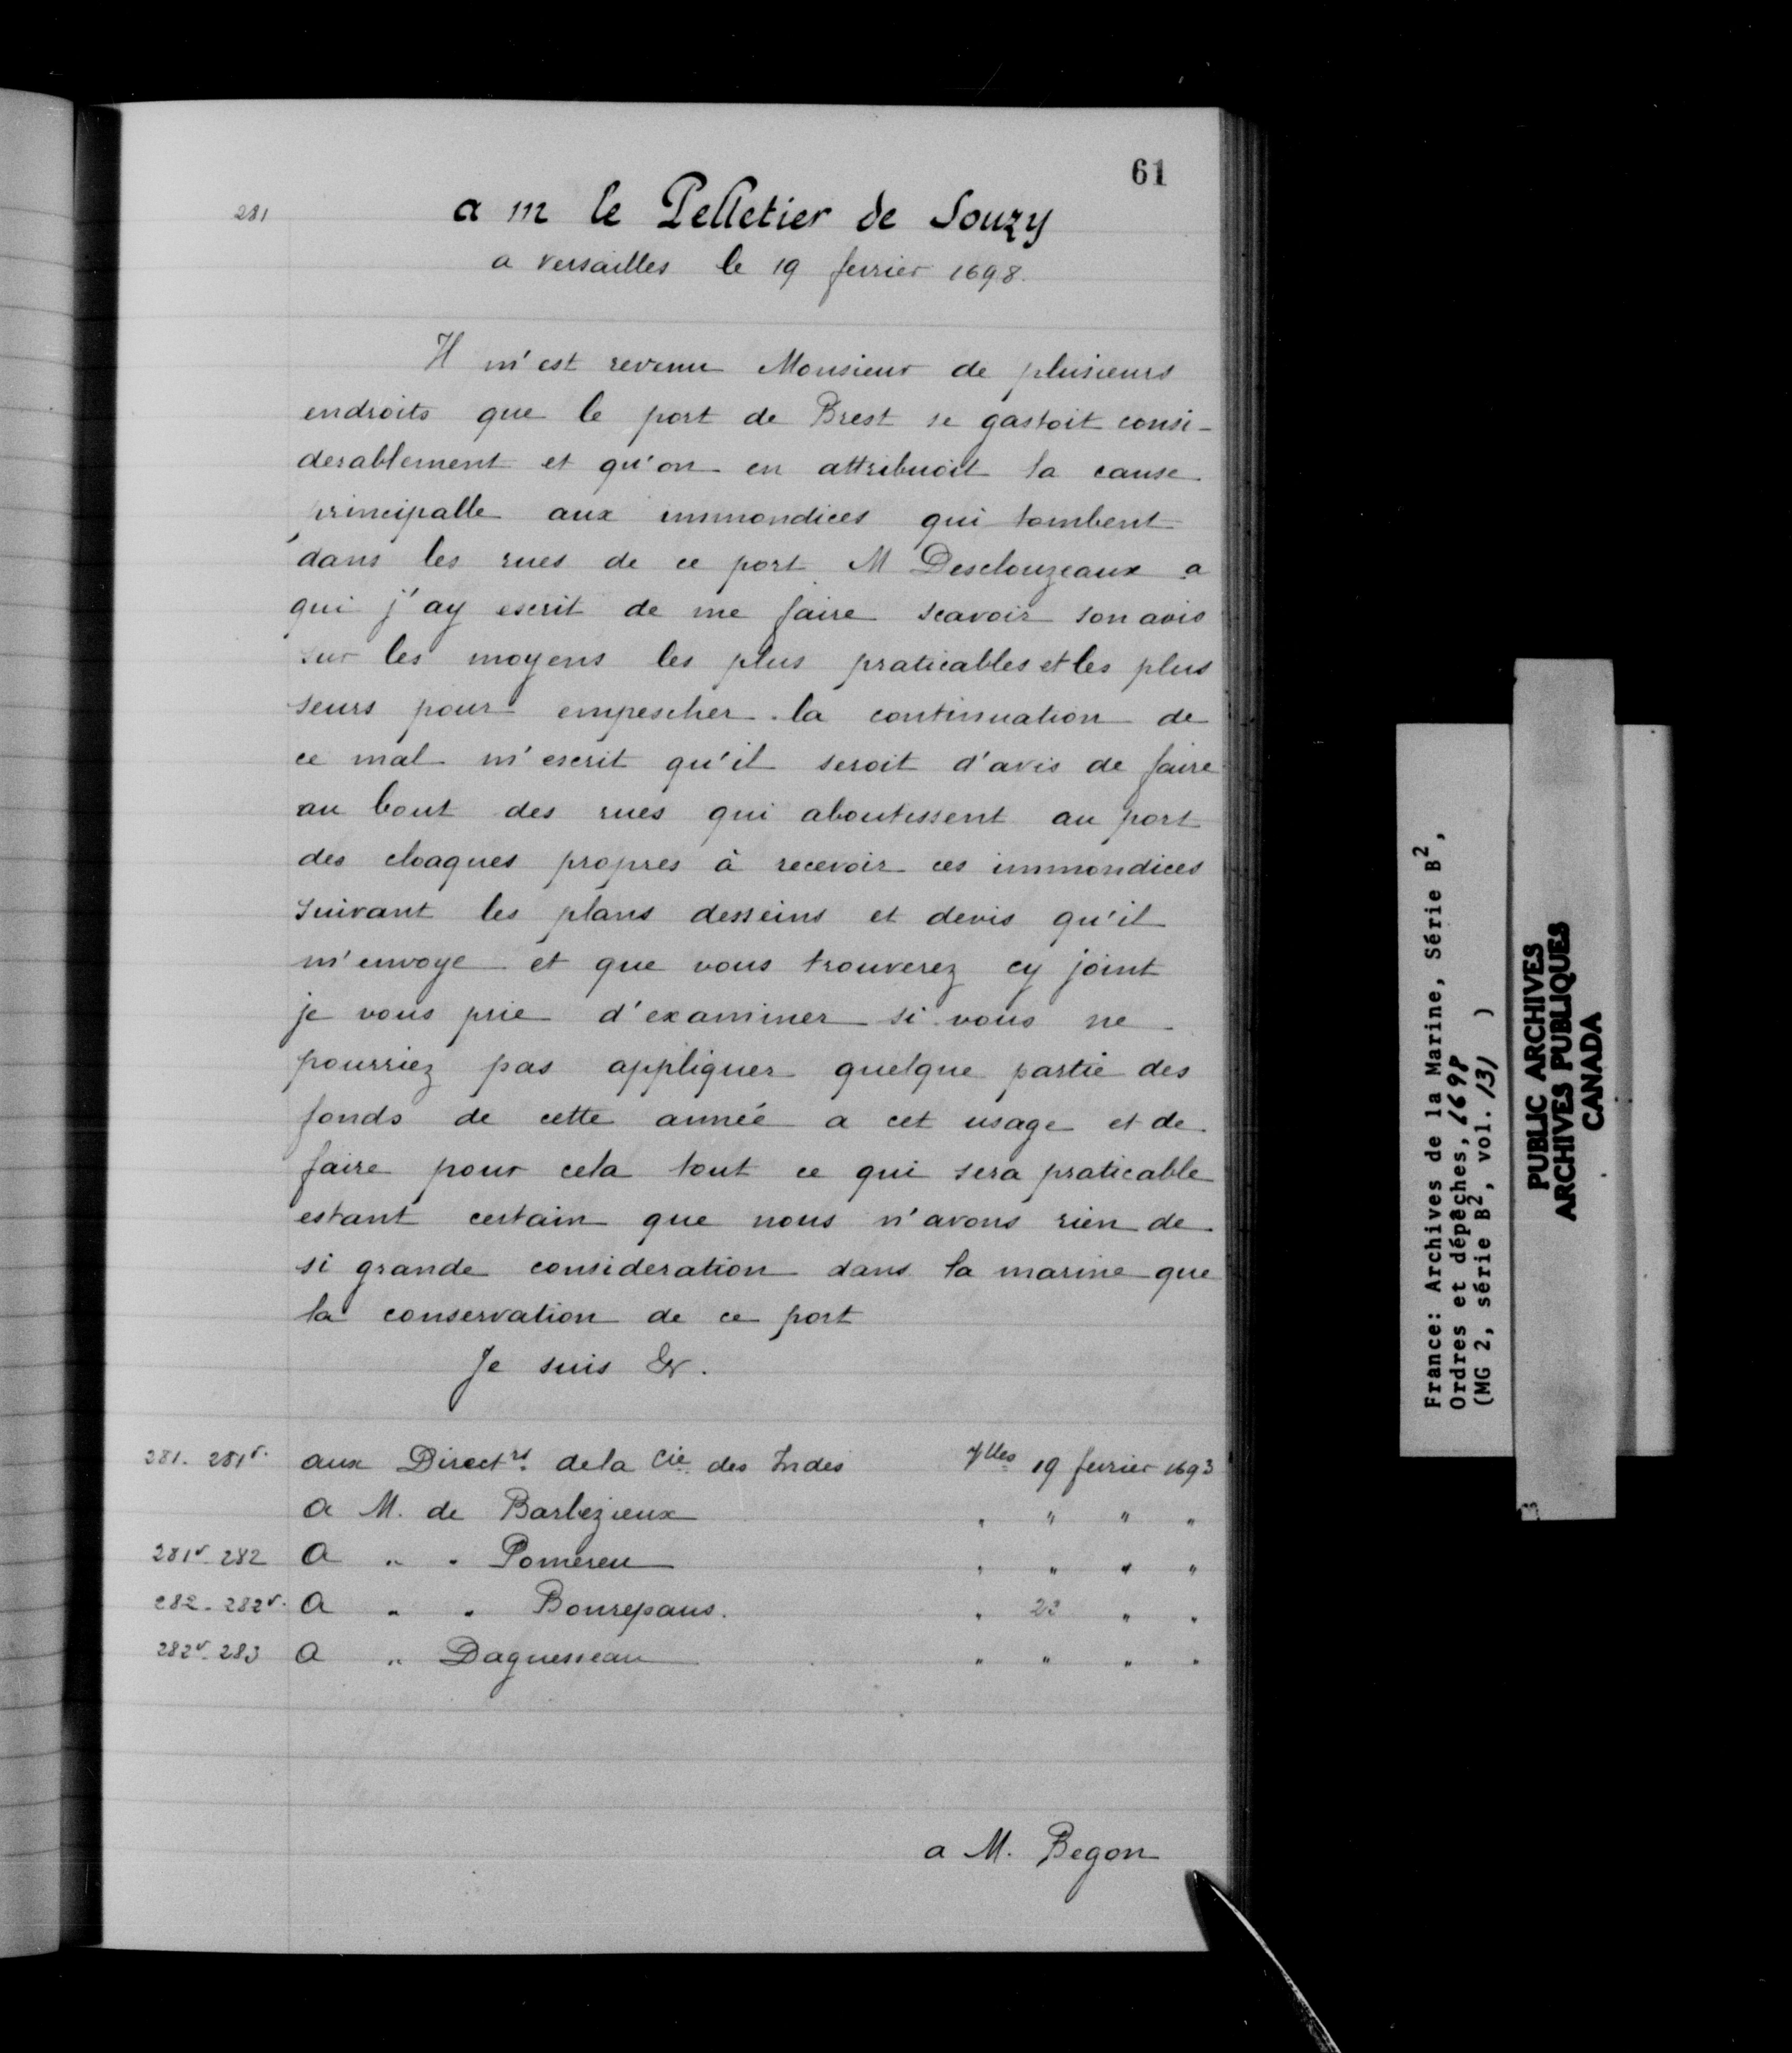 61
281
a m le Pelletier de Souzy
a versailles le 19 fevrier 1698.
Il m'est revenu Monsieur de plusieurs
endroits que le port de Brest se gastoit consi-
derablement et qu'on en attribuoit la cause
principalle aux immondices qui tombent
dans les rues de ce port M Desclouzeaux a
qui j'ay escrit de me faire scavoir son avis
sur les moyens les plus praticables et les plus
seurs pour empescher la continuation de
ce mal m'escrit qu'il seroit d'avis de faire
au bout des rues qui aboutissent au port
des cloaques propres à recevoir ces immondices
suivant les plans desseins et devis qu'il
m'envoye et que vous trouverez cy joint
je vous prie d'examiner si vous ne
pourriez pas appliquer quelque partie des
fonds de cette année a cet usage et de
faire pour cela tout ce qui sera praticable
estant certain que nous n'avons rien de
si grande consideration dans la marine que
la conservation de ce port
Je suis &.
281. 281v. aux Directrs de la Cie des Indes Vlles 19 fevrier 1693
a M. de Barbezieux " " " "
281v. 282 a " " Pomereu " " " "
282. 282v. a " " Bonrepaus. " 23 " "
282v. 283 a " Daguesseau " " " "
a M. Begon
France: Archives de la Marine, Série B2,
Ordres et dépêches, 1698
(MG 2, série B2, vol. 131 )
PUBLIC ARCHIVES
ARCHIVES PUBLIQUES
CANADA